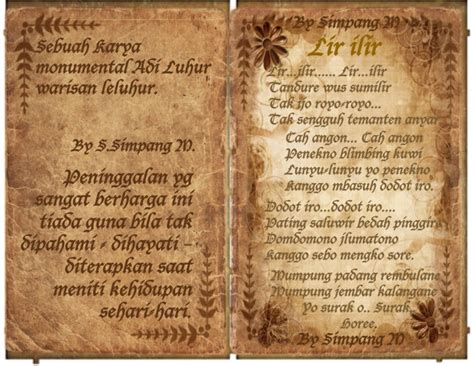 Sebuah Karya
monumental Adi Luhur
warisan leluhur.
By S.Simpang M.
Peninggalan yg
sangat berharga ini
tiada guna bila tak
dipahami - dihayati -
diterapkan saat
meniti kehidupan
sehari-hari.
By Simpang M
Lir ilir
Lir...ilir...... Lir...ilir
Tandure wus sumilir
Tak ijo royo-royo...
Tak sengguh temanten anyar
Cah angon... Cah angon
Penekno blimbing kuwi
Lunyu-lunyu yo penekno
Kanggo mbasuh dodot iro.
Dodot iro...dodot iro....
Pating saluwir bedah pinggire
Domdomono jlumatono
Kanggo sebo mengko sore.
Mumpung padang rembulane
Mumpung jembar kalangane
Yo surak o.. Surak.
Horee.
By Simpang M